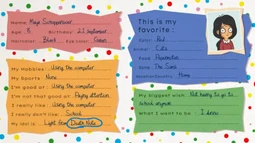 Name: Maya
Age: 8 Birthday: 21 september
Haircolor: Black Eye color: Green
My Hobbies: Using the computer
My Sports: None
I'm good at: Using the computer
I'm not that good at: Paying attention
I really like: Using the computer
I really don't like: School
My idol is:
This is my favorite:
Color: Red
Animal: Cats
Food:
Movie: The
Home
My biggest wish: Not having to go to school anymore
What I want to be: I dunno